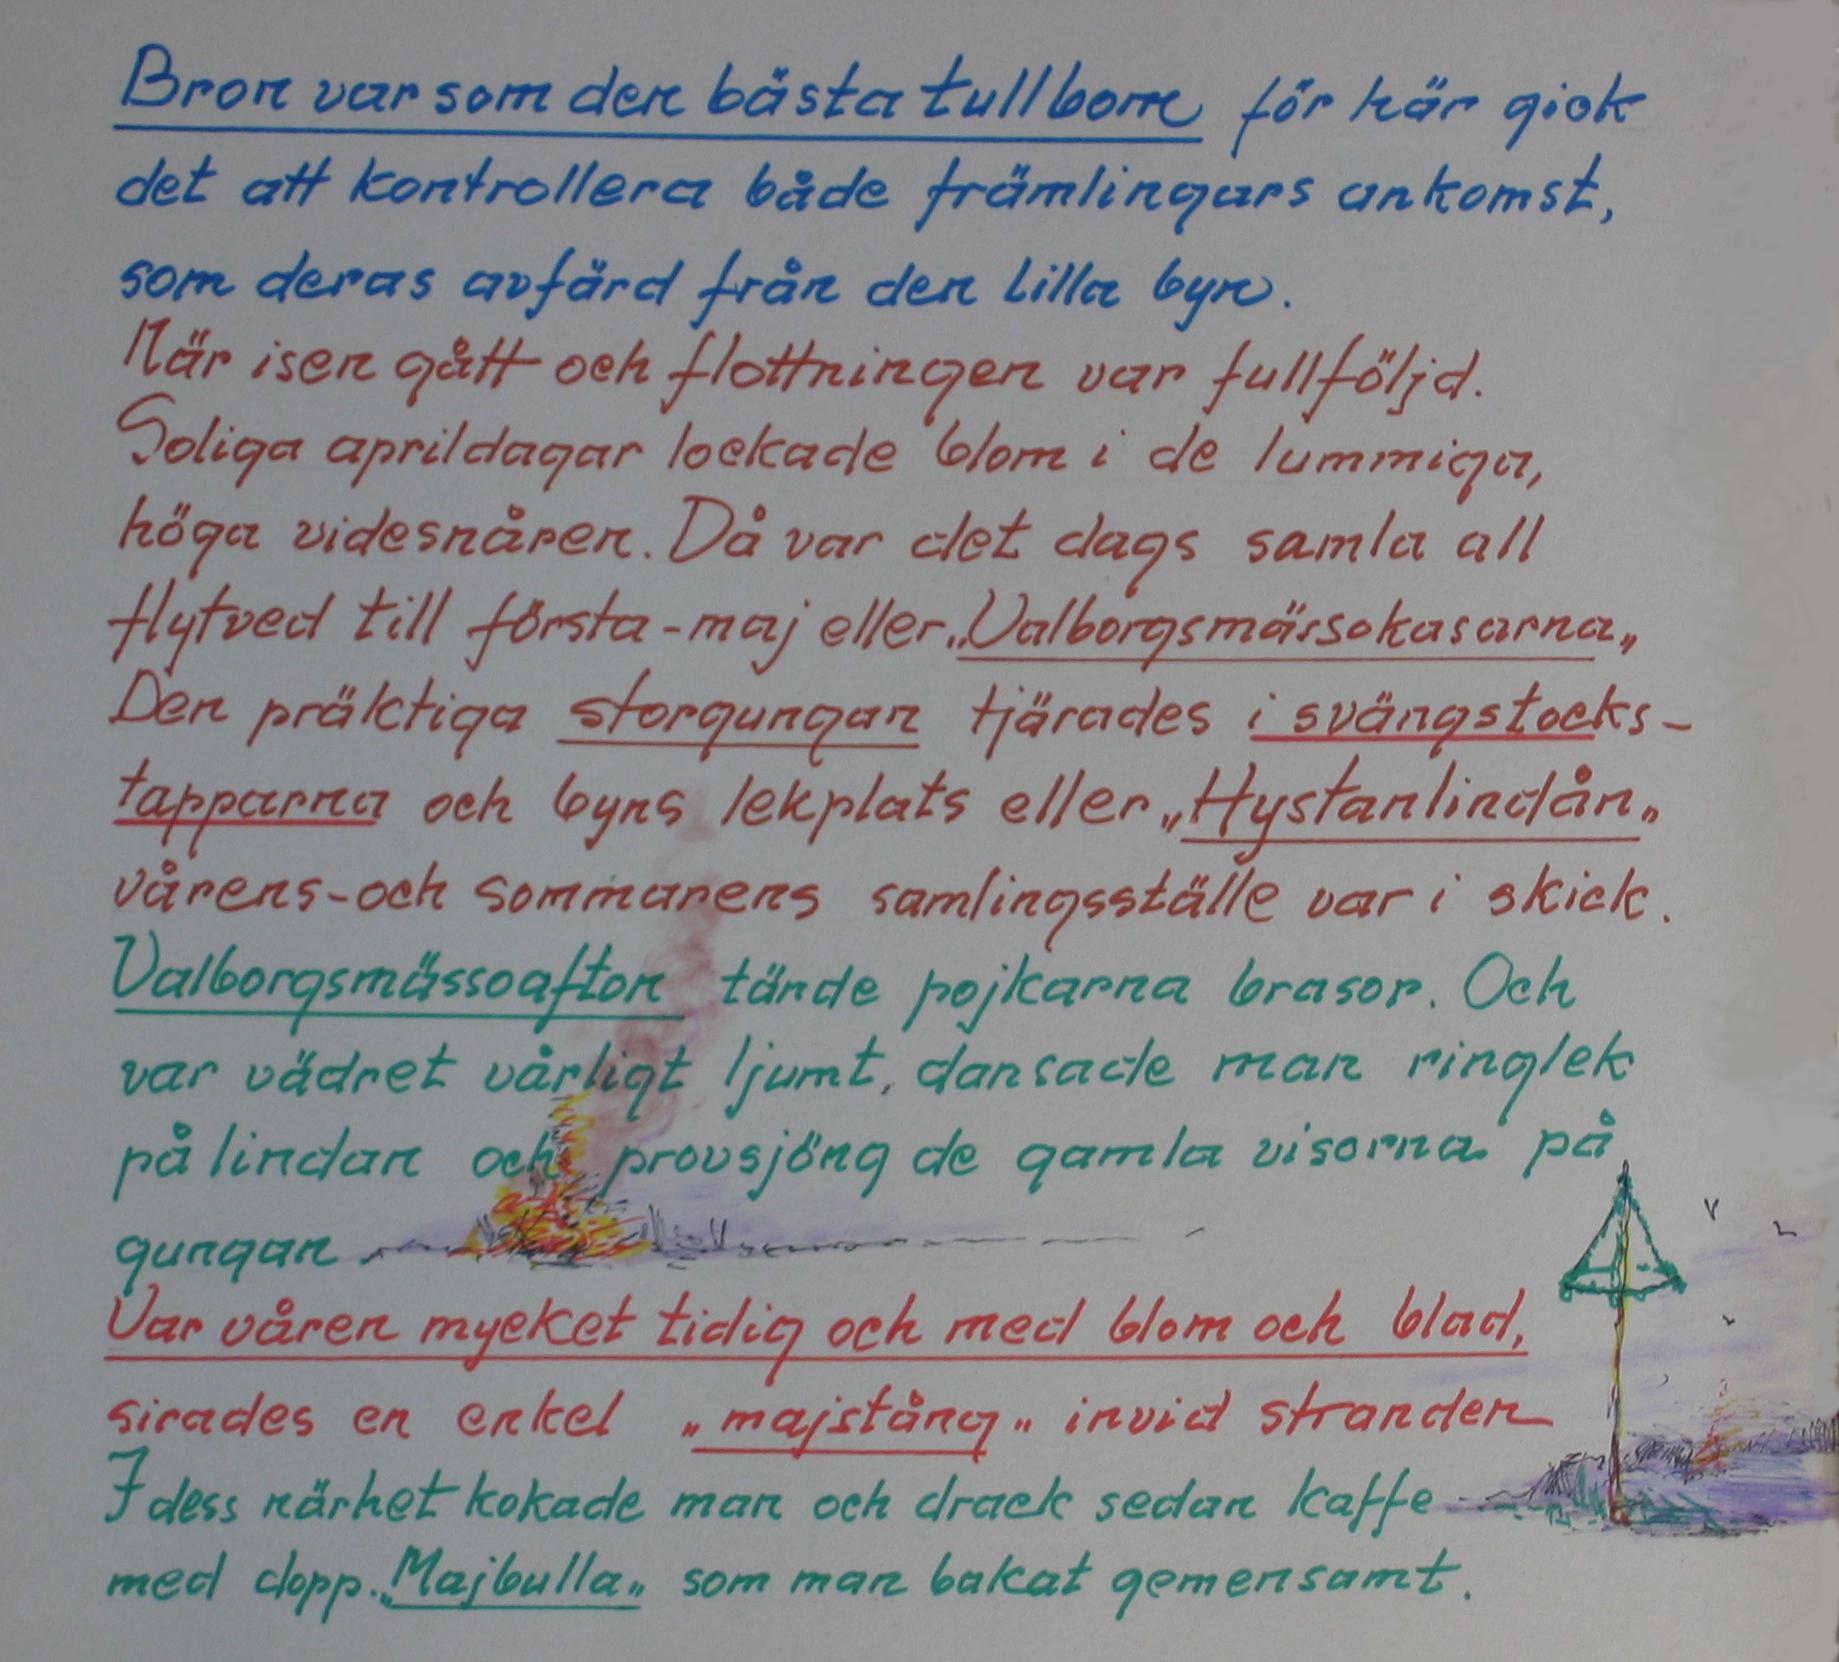 Bron var som den bästa tullbom för här gick
det att kontrollera både främlingars ankomst,
som deras avfärd från den lilla byn.
När isen gått och flottningen var fullföljd.
Soliga aprildagar lockade blom i de lummiga,
höga videsnåren. Då var det dags samla all
flytved till första-maj eller „Valborgsmässokasarna„
Den präktiga storgungan tjärades i svängstocks-
tapparna och byns lekplats eller „Hystanlindån„
vårens-och sommarens samlingsställe var i skick.
Valborgsmässoafton tände pojkarna brasor. Och
var vädret vårligt ljumt, dansade man ringlek
på lindan och provsjöng de gamla visorna på
gungan.
Var våren mycket tidig och med blom och blad,
sirades en enkel „majstång„ invid stranden
I dess närhet kokade man och drack sedan kaffe
med dopp. „Majbulla„ som man bakat gemensamt.